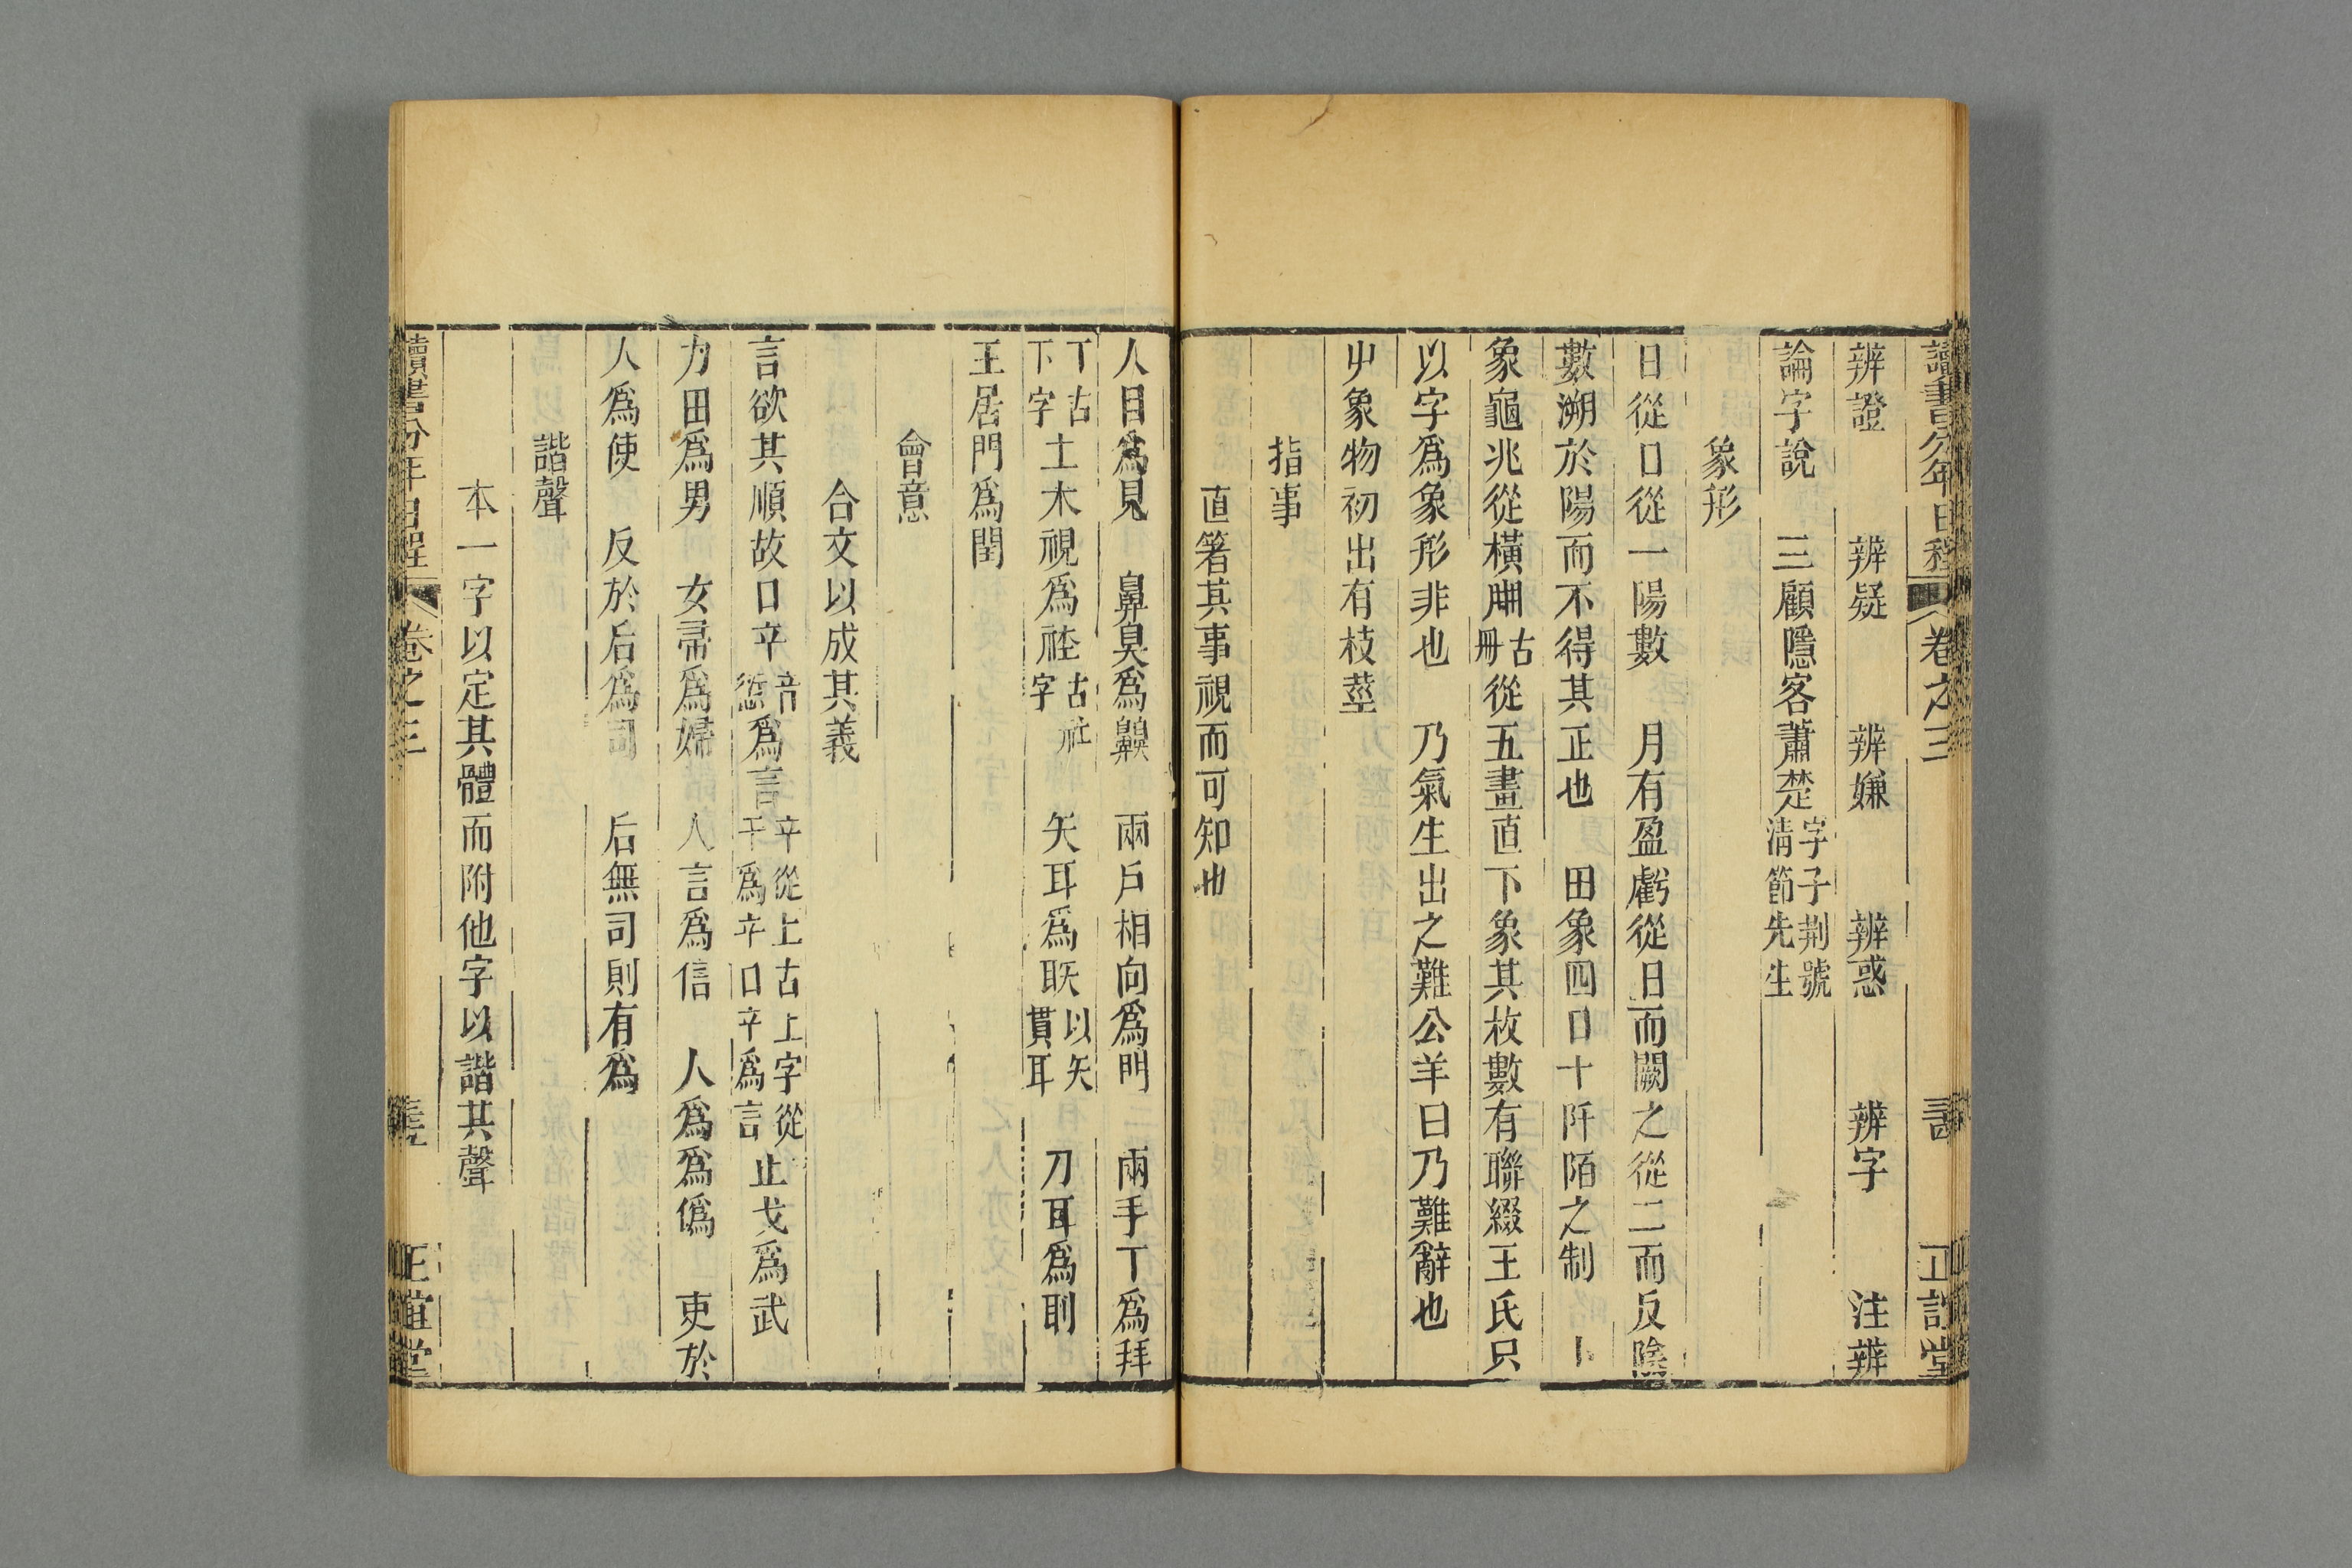 讀書分年日程 卷之三 正誼堂
辨證 辨疑 辨嫌 辨惑 辨字 注辨
論字說 三顧隱客蕭楚字子荆號清節先生
象形
日從口從一陽數 月有盈虧從日而闕之從二而反陰
數溯於陽而不得其正也 田象四口十阡陌之制 卜
象龜兆從橫𠕋古冊從五畫直下象其枚數有聯綴王氏只
以字爲象形非也 乃氣生出之難公羊曰乃難辭也
屮象物初出有枝莖
指事
直箸其事視而可知也
人目爲見 鼻臭爲齅 兩戶相向爲門 兩手丅爲拜
丅古下字 土木視爲𥙭古社字 矢耳爲䏋以矢貫耳 刀耳爲刵
王居門爲閏
會意
合文以成其義
言欲其順故口䇂音愆爲言䇂從上古上字從干爲䇂口䇂爲言 止戈爲武
力田爲男 女帚爲婦 人言爲信 人爲爲僞 吏於
人爲使 反於后爲司 后無司則有爲
諧聲
本一字以定其體而附他字以諧其聲
讀書分年日程 卷之三 正誼堂